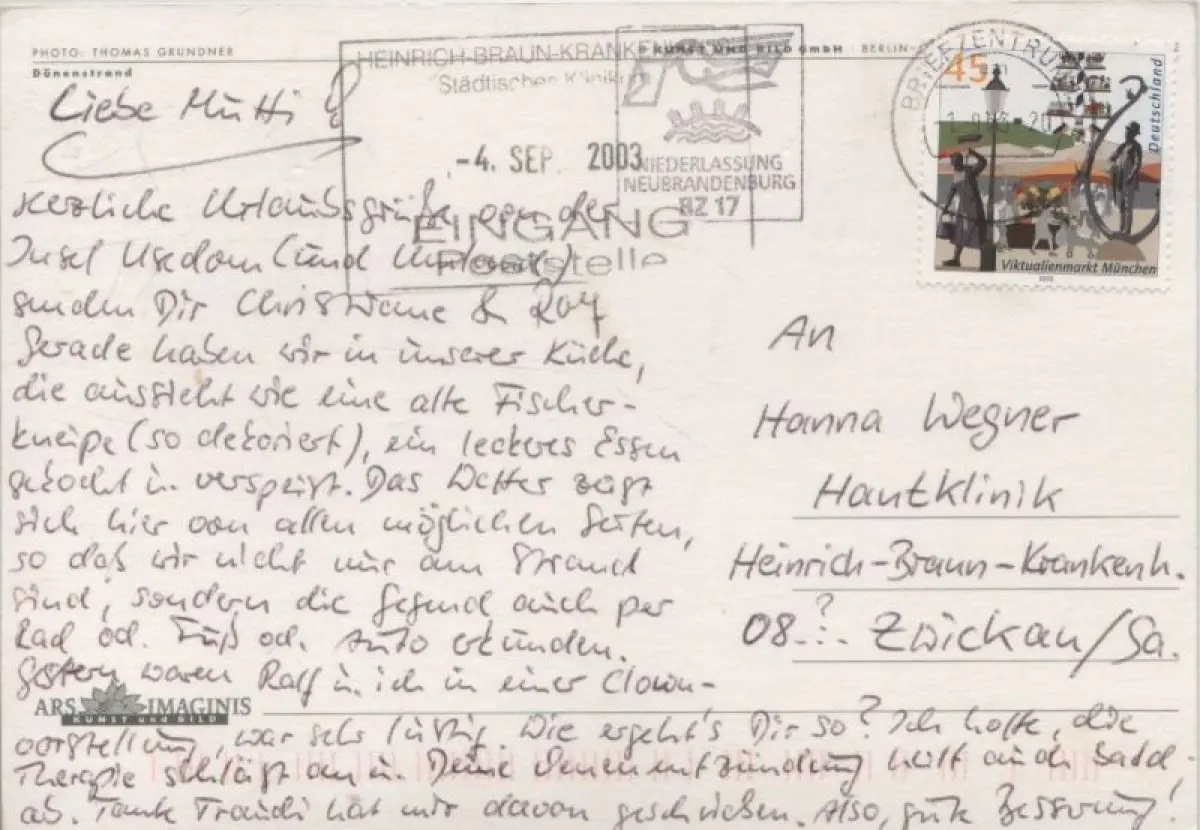 PHOTO: THOMAS GRUNDNER
Dünenstrand
KUNST UND BILD GmbH BERLIN-
HEINRICH-BRAUN-KRANKENHAUS
Städtisches Klinikum
-4. SEP. 2003
EINGANG
Poststelle
NIEDERLASSUNG
NEUBRANDENBURG
BZ 17
BRIEFZENTRUM
45
Deutschland
Viktualienmarkt München
2003
Liebe Mutti!
Herzliche Urlaubsgrüße von der
Insel Usedom (und Umland)
senden Dir Christiane & Ralf
Gerade haben wir in unserer Küche,
die aussieht wie eine alte Fischer-
kneipe (so dekoriert), ein leckeres Essen
gekocht u. verspeist. Das Wetter zeigt
sich hier von allen möglichen Seiten,
so daß wir nicht nur am Strand
sind, sondern die Gegend auch per
Rad od. Fuß od. Auto erkunden.
Gestern waren Ralf u. ich in einer Clown-
vorstellung, war sehr lustig. Wie ergeht's Dir so? Ich hoffe, die
Therapie schlägt an u. Deine Venenentzündung heilt auch bald
ab. Tante Traudi hat mir davon geschrieben. Also, gute Besserung!
An
Hanna Wegner
Hautklinik
Heinrich-Braun-Krankenh.
08..? Zwickau/Sa.
ARS IMAGINIS
KUNST und BILD